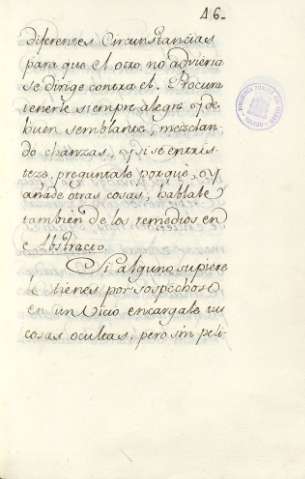 16.
diferentes Circunstancias
para que el otro no advierta
se dirige contra el. Procura
tenerle siempre alegre y de
buen semblante, mezclan-
do chanzas, y si se entris-
teze, preguntale porqué, y
añade otras cosas, hablale
tambien de los remedios en
abstracto.
Si alguno supiere
le tienes por sospechoso
en un Vicio encargale tus
cosas ocultas, pero sin peli-